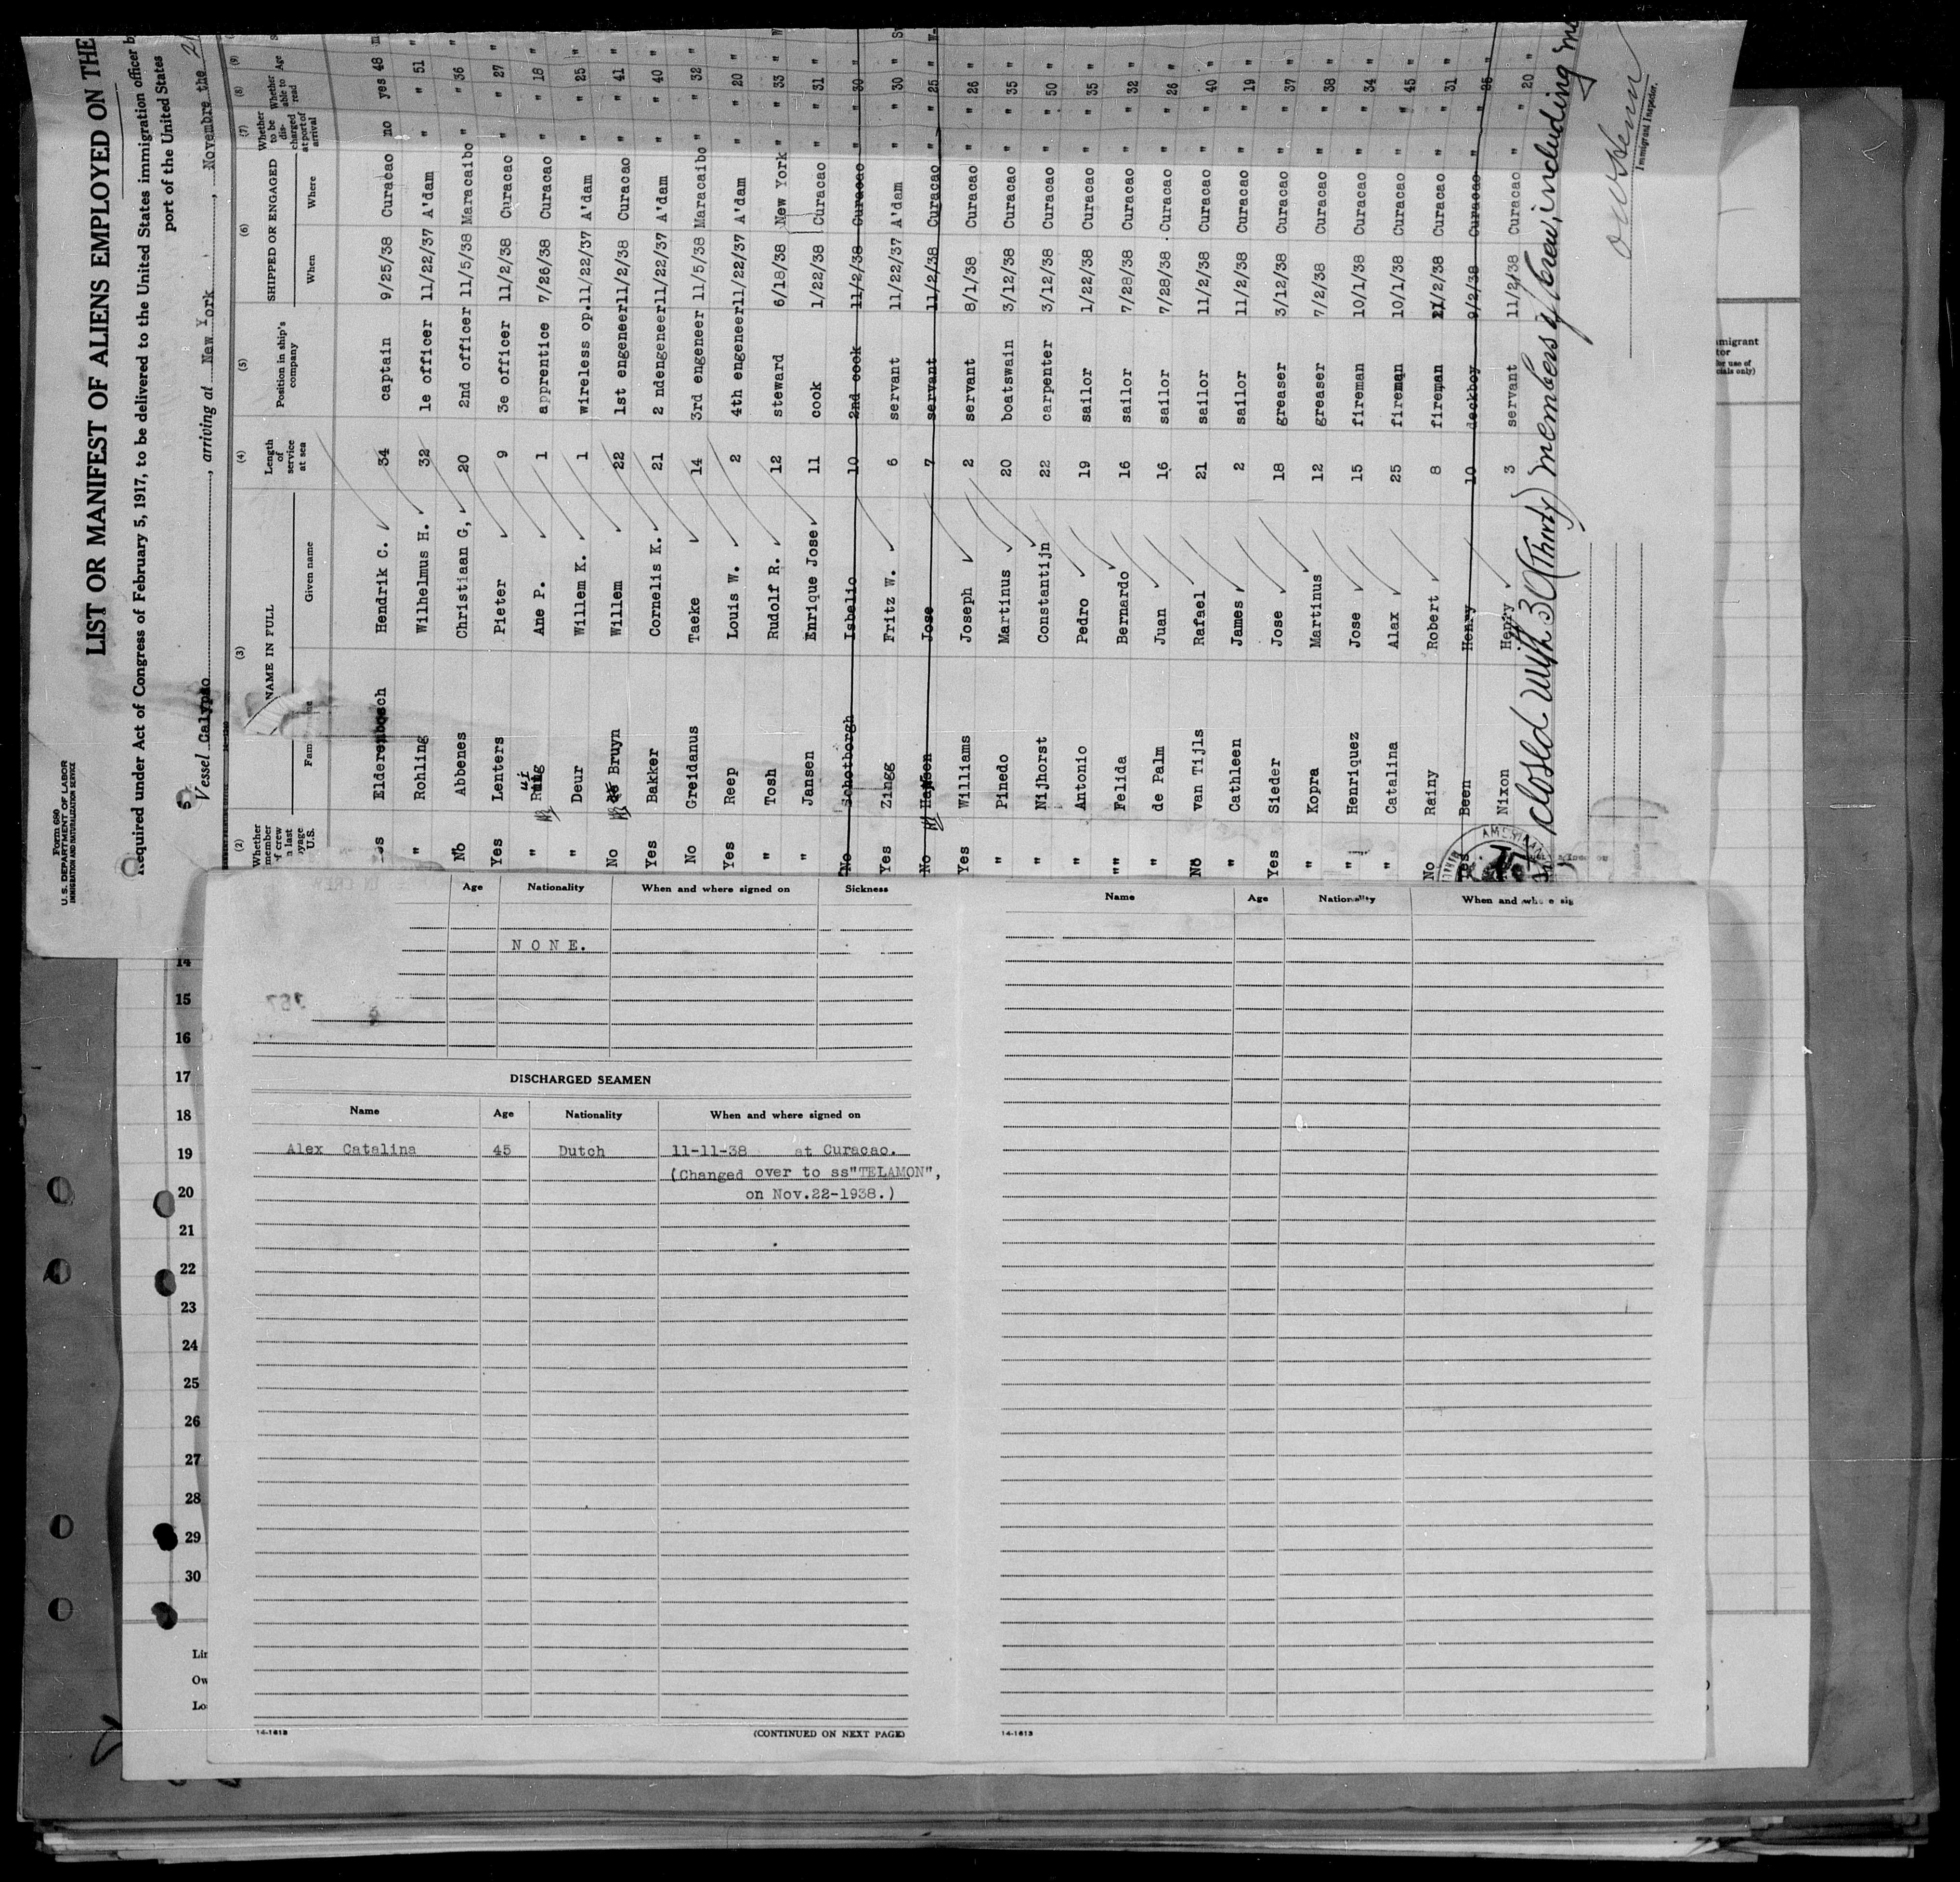 Form 680
U. S. DEPARTMENT OF LABOR
IMMIGRATION AND NATURALIZATION SERVICE
LIST OR MANIFEST OF ALIENS EMPLOYED ON THE
Required under Act of Congress of February 5, 1917, to be delivered to the United States immigration officer b
port of the United States
Vessel Calypso, arriving at New York, Novembre the 21
(2) (3) (4) (5) (6) (7) (8) (9)
Whether member of crew on last voyage U.S. NAME IN FULL Family name Given name Length of service at sea Position in ship's company SHIPPED OR ENGAGED When Where Whether to be discharged at port of arrival Whether able to read Age
es Elderenbosch Hendrik C. 34 captain 9/25/38 Curacao no yes 48
" Rohling Wilhelmus H. 32 1e officer 11/22/37 A'dam " " 51 "
No Abbenes Christiaan G, 20 2nd officer 11/5/38 Maracaibo " " 36 "
Yes Lenters Pieter 9 3e officer 11/2/38 Curacao " " 27 "
" Ane P. 1 apprentice 7/26/38 Curacao " " 18 "
" Deur Willem K. 1 wireless op. 11/22/37 A'dam " " 25 "
No de Bruyn Willem 22 1st engeneer 11/2/38 Curacao " " 41 "
Yes Bakker Cornelis K. 21 2 ndengeneer 11/22/37 A'dam " " 40 "
No Greidanus Taeke 14 3rd engeneer 11/5/38 Maracaibo " " 32 "
Yes Reep Louis W. 2 4th engeneer 11/22/37 A'dam " " 20 "
" Tosh Rudolf R. 12 steward 6/18/38 New York " " 33 "
" Jansen Enrique Jose 11 cook 1/22/38 Curacao " " 31 "
No Schotborgh Isbelio 10 2nd cook 11/2/38 Curacao " " 30 "
Yes Zingg Fritz W. 6 servant 11/22/37 A'dam " " 30 "
No Jose 7 servant 11/2/38 Curacao " " 25 "
Yes Williams Joseph 2 servant 8/1/38 Curacao " " 26 "
" Pinedo Martinus 20 boatswain 3/12/38 Curacao " " 35 "
" Nijhorst Constantijn 22 carpenter 3/12/38 Curacao " " 50 "
" Antonio Pedro 19 sailor 1/22/38 Curacao " " 35 "
"" Felida Bernardo 16 sailor 7/28/38 Curacao " " 32 "
" de Palm Juan 16 sailor 7/28/38 Curacao " " 26 "
No van Tijls Rafael 21 sailor 11/2/38 Curacao " " 40 "
" Cathleen James 2 sailor 11/2/38 Curacao " " 19 "
Yes Sieder Jose 18 greaser 3/12/38 Curacao " " 37 "
" Kopra Martinus 12 greaser 7/2/38 Curacao " " 38 "
" Henriquez Jose 15 fireman 10/1/38 Curacao " " 34 "
" Catalina Alax 25 fireman 10/1/38 Curacao " " 45 "
No Rainy Robert 8 fireman 11/2/38 Curacao " " 31 "
Yes Been Henry 10 deckboy 9/2/38 Curacao " " "
Nixon Henry 3 servant 11/2/38 Curacao " " 20 "
closed with 30 (Thirty) members of crew, including
Immigrant Inspector.
AMERICAN
Age Nationality When and where signed on Sickness
NONE.
DISCHARGED SEAMEN
Name Age Nationality When and where signed on
Alex Catalina 45 Dutch 11-11-38 at Curacao.
(Changed over to ss"TELAMON",
on Nov.22-1938.)
14-1613 (CONTINUED ON NEXT PAGE)
Name Age Nationality When and where sig
14-1613
14
15
16
17
18
19
20
21
22
23
24
25
26
27
28
29
30
Lin
Ow
Lo